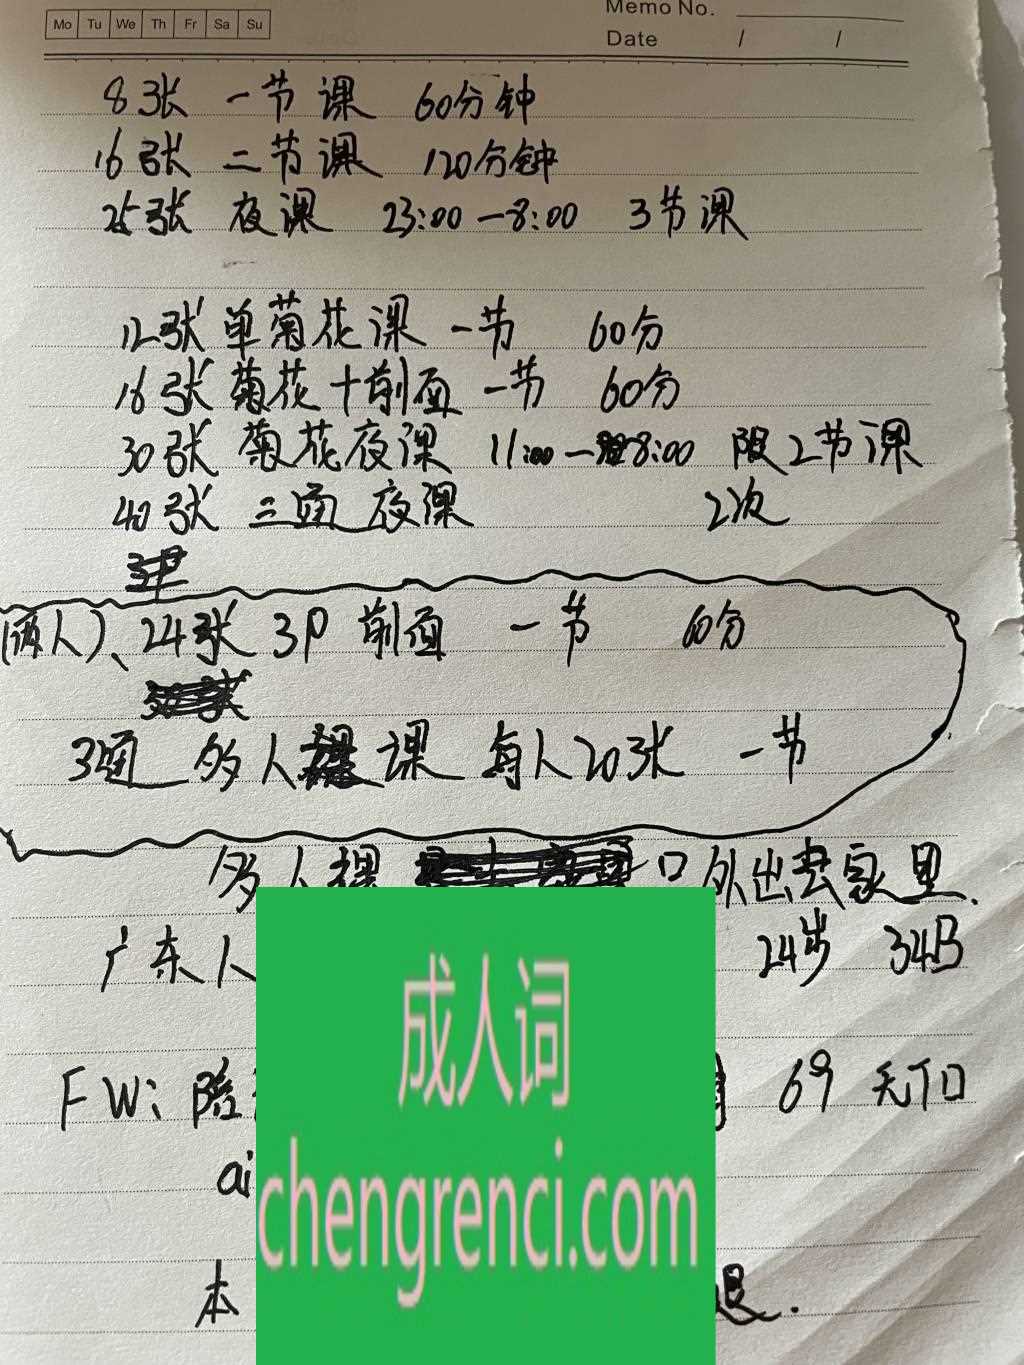 Mo Tu We Th Fr Sa Su
Memo No.
Date / /
8张 一节课 60分钟
16张 二节课 120分钟
25张 夜课 23:00一8:00 3节课
12张 单菊花课 一节 60分
16张 菊花+前面 一节 60分
30张 菊花夜课 11:00一8:00 限2节课
40张 三通 夜课 2次
(两人)、24张 3P 前面 一节 60分
3通 多人课 每人20张 一节
多人课 只外出去家里.
广东人 24岁 34B
FW: 陪 69 无TO
ai
本 退.
成人词
chengrenci.com